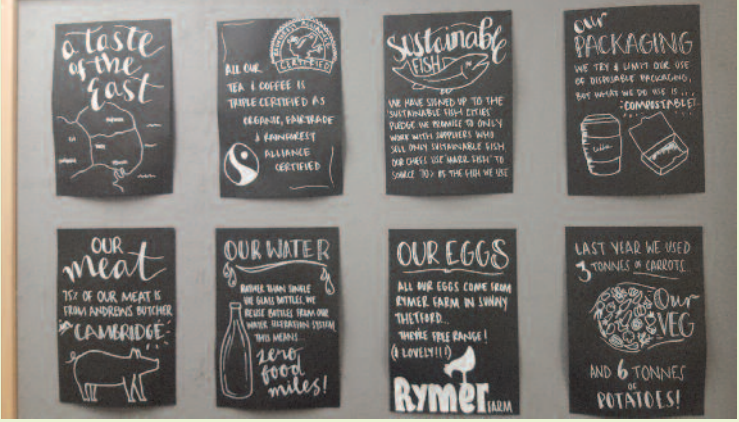 a taste
of the
East
RAINFOREST ALLIANCE
CERTIFIED
ALL OUR
TEA & COFFEE IS
TRIPLE CERTIFIED AS
ORGANIC, FAIRTRADE
& RAINFOREST
ALLIANCE
CERTIFIED
Sustainable
FISH
WE HAVE SIGNED UP TO THE
SUSTAINABLE FISH CITIES
PLEDGE. WE PROMISE TO ONLY
WORK WITH SUPPLIERS WHO
SELL ONLY SUSTAINABLE FISH.
OUR CHEFS USE 'MARR FISH' TO
SOURCE 70% OF THE FISH WE USE
our
PACKAGING
WE TRY & LIMIT OUR USE
OF DISPOSABLE PACKAGING,
BUT WHAT WE DO USE IS ...
COMPOSTABLE!
OUR
meat
75% OF OUR MEAT IS
FROM ANDREWS BUTCHER
CAMBRIDGE
OUR WATER
RATHER THAN SINGLE
USE GLASS BOTTLES, WE
REUSE BOTTLES FROM OUR
WATER FILTRATION SYSTEM,
THIS MEANS
zero
food
miles!
OUR EGGS
ALL OUR EGGS COME FROM
RYMER FARM IN SUNNY
THETFORD...
THEY'RE FREE RANGE!
(& LOVELY!!!)
Rymer FARM
LAST YEAR WE USED
3 TONNES OF CARROTS
Our
VEG
AND 6 TONNES
OF
POTATOES!